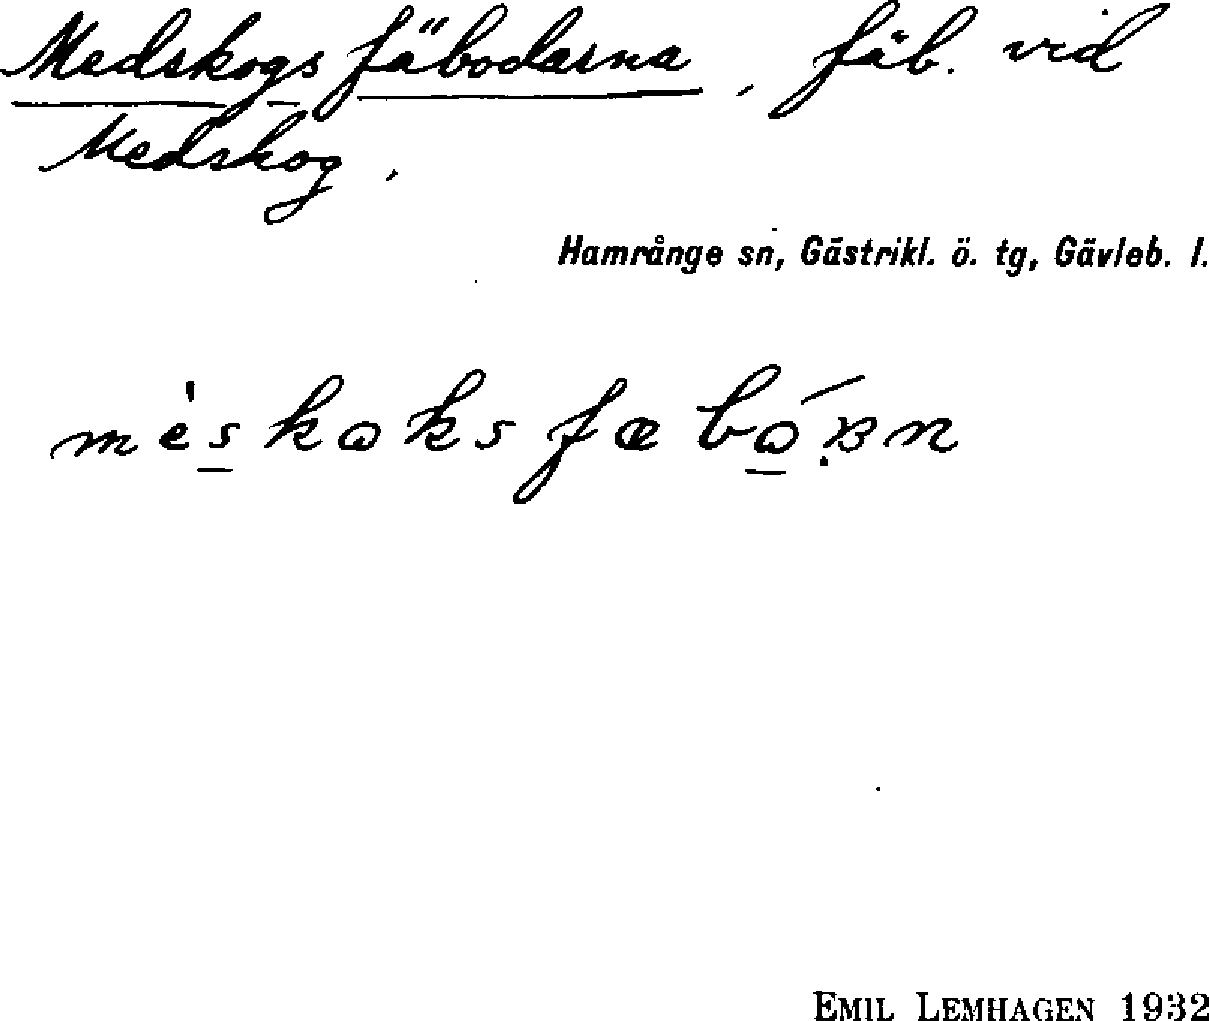 Medskogs fäbodarna, fäb. vid
Medskog.
Hamrånge sn, Gästrikl. ö. tg, Gävleb. l.
EMIL LEMHAGEN 1932